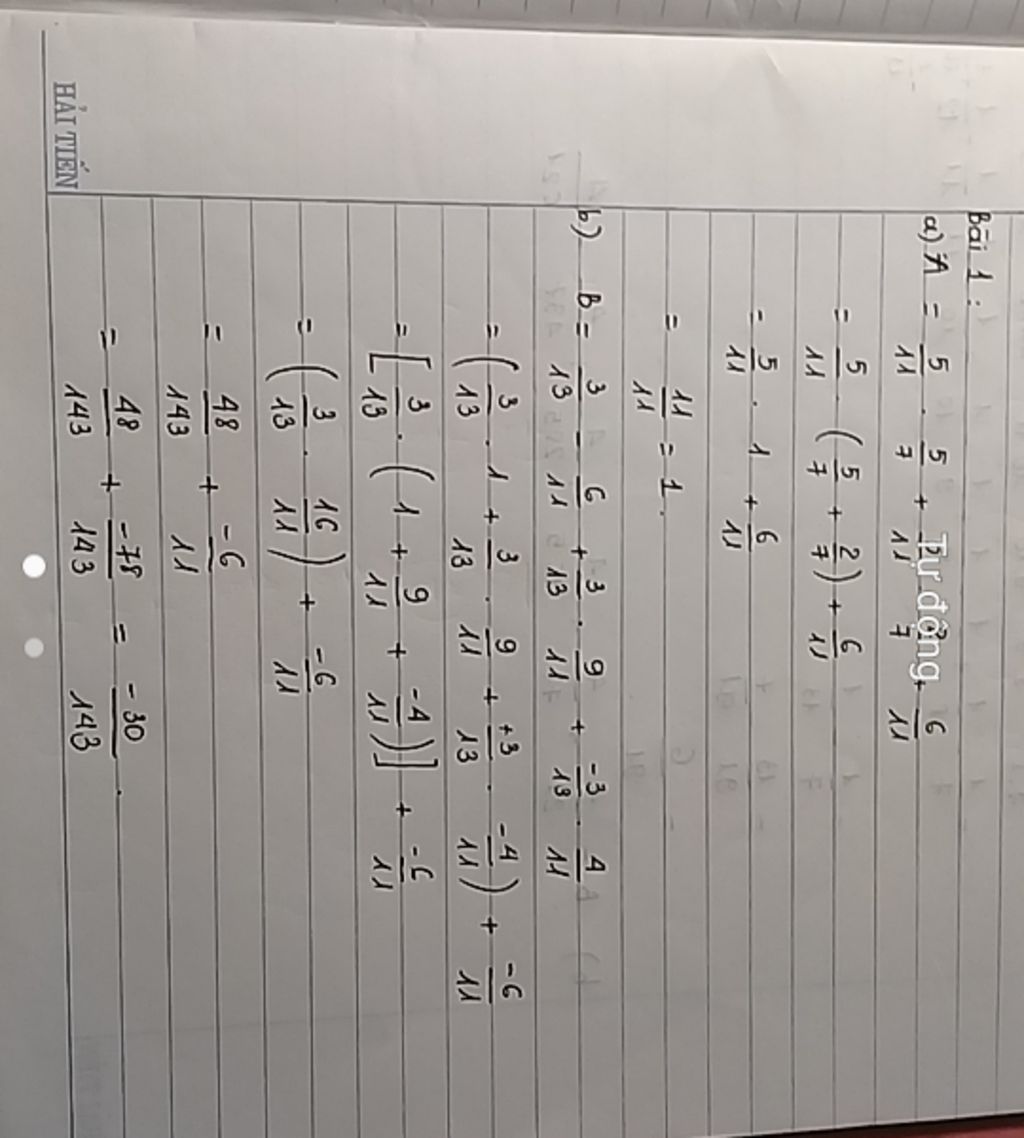 Bài 1:
a) A = 5/11 . 5/7 + 5/11 . 2/7 + 6/11
= 5/11 . (5/7 + 2/7) + 6/11
= 5/11 . 1 + 6/11
= 11/11 = 1.
b) B = 3/13 - 6/11 + 3/13 . 9/11 + -3/13 . 4/11
= (3/13 . 1 + 3/13 . 9/11 + +3/13 . -4/11) + -6/11
= [3/13 . (1 + 9/11 + -4/11)] + -6/11
= (3/13 . 16/11) + -6/11
= 48/143 + -6/11
= 48/143 + -78/143 = -30/143.
HẢI TIẾN
Tự động